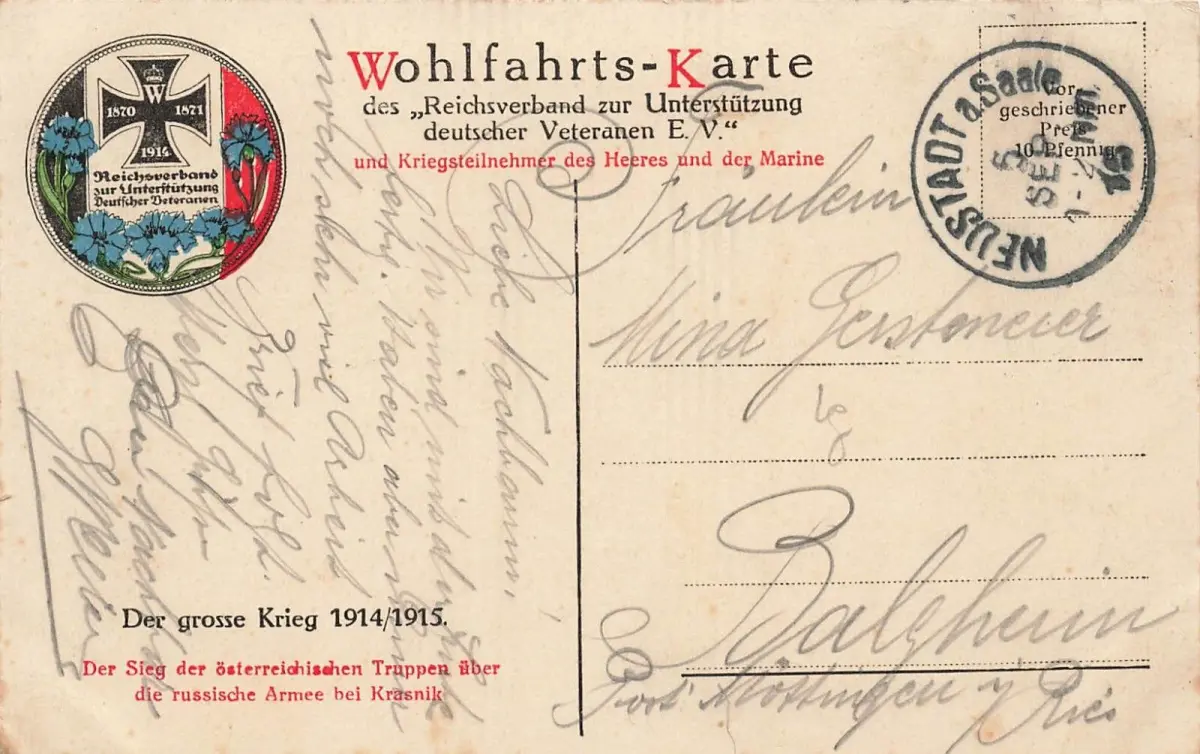 Wohlfahrts-Karte
des „Reichsverband zur Unterstützung
deutscher Veteranen E. V.“
und Kriegsteilnehmer des Heeres und der Marine
W
1870 1871
1914
Reichsverband
zur Unterstützung
Deutscher Veteranen
Vor
geschriebener
Preis
10 Pfennig
NEUSTADT a. Saale
5
SEP
1-2 Nm.
15
Fräulein
Mina Gerstmeier
Balgheim
Post Möttingen
Ries
Liebe Nachbarin,
Wir sind mit der
fertig. Haben aber
noch sehr viel Arbeit
Brief folgt.
Der grosse Krieg 1914/1915.
Der Sieg der österreichischen Truppen über
die russische Armee bei Krasnik